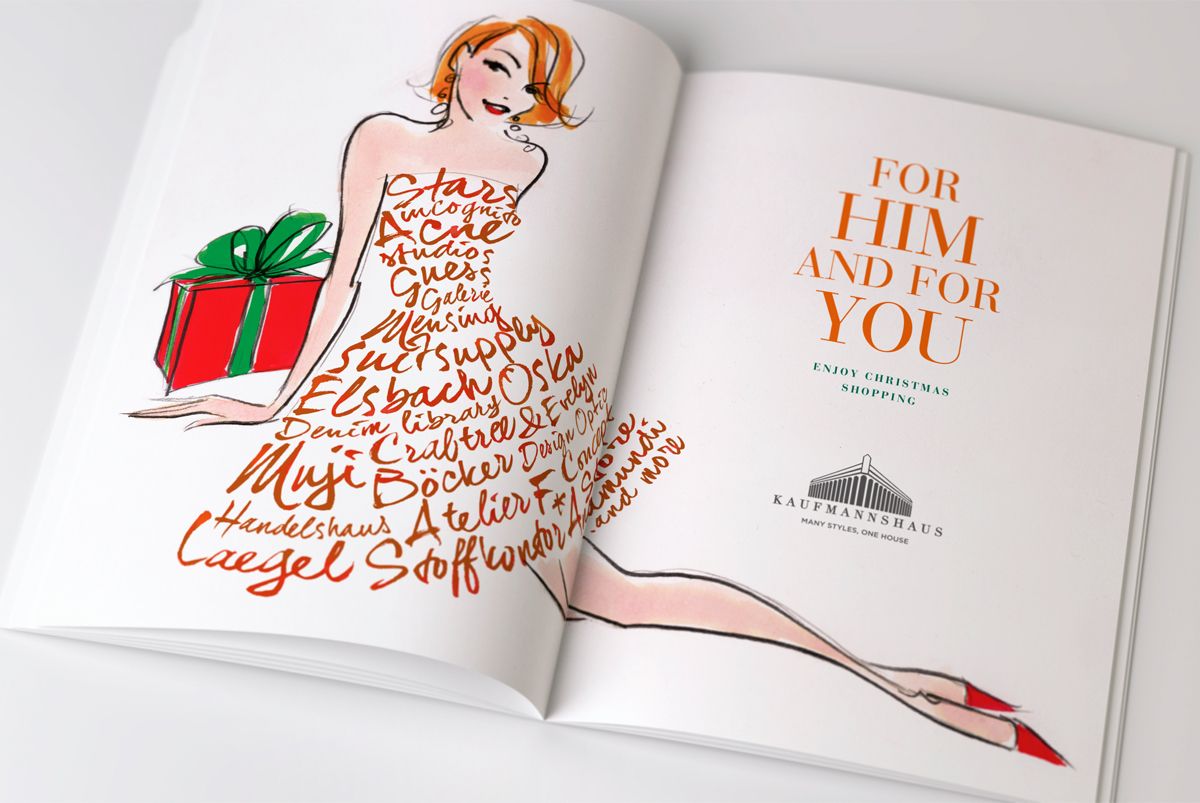 Stars
incognito
Acne
studios
Guess
Galerie
Mensing
suitsupply
Elsbach Oska
Denim library
Crabtree & Evelyn
Muji Böcker Design Optic
Handelshaus Atelier F* Concept Store
Laegel Stoffkontor
and more
FOR
HIM
AND FOR
YOU
ENJOY CHRISTMAS
SHOPPING
KAUFMANNSHAUS
MANY STYLES, ONE HOUSE